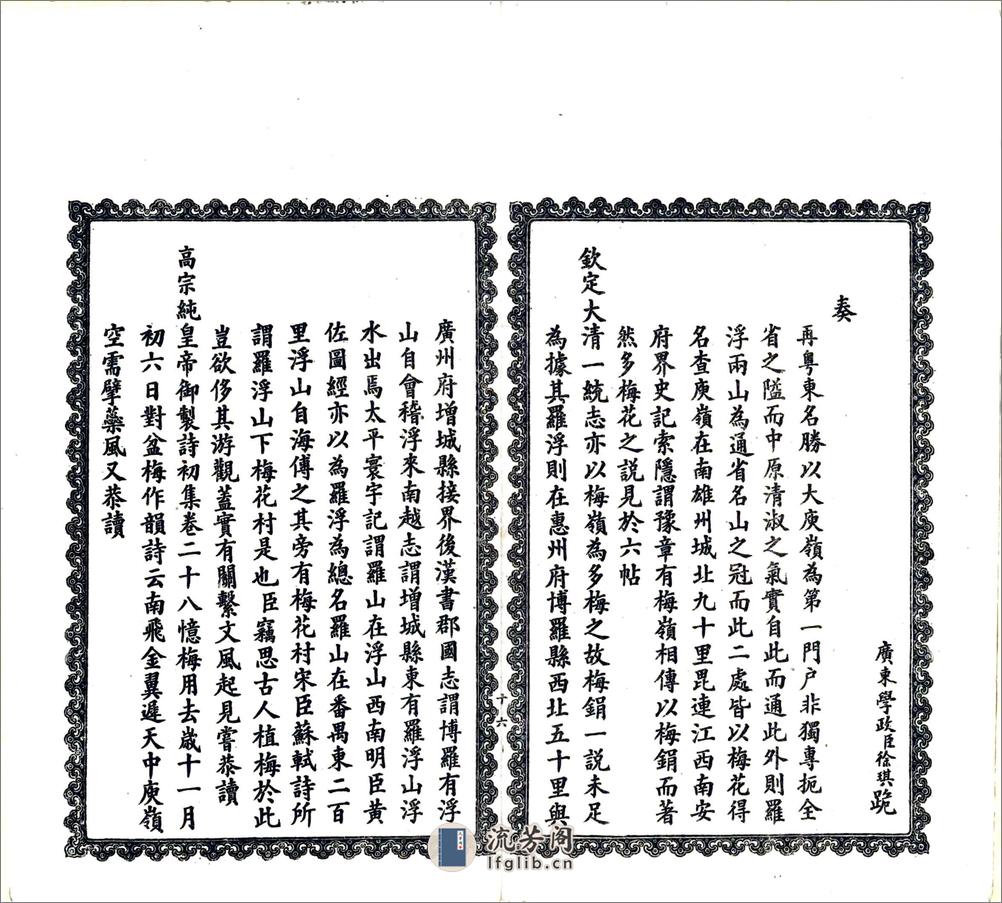 廣東學政臣徐琪跪
奏
再粵東名勝以大庾嶺為第一門户非獨專扼全
省之隘而中原清淑之氣實自此而通此外則羅
浮兩山為通省名山之冠而此二處皆以梅花得
名查庾嶺在南雄州城北九十里毘連江西南安
府界史記索隱謂豫章有梅嶺相傳以梅鋗而著
然多梅花之説見於六帖
欽定大清一統志亦以梅嶺為多梅之故梅鋗一説未足
為據其羅浮則在惠州府博羅縣西北五十里與
十六
廣州府增城縣接界後漢書郡國志謂博羅有浮
山自會稽浮來南越志謂增城縣東有羅浮山浮
水出焉太平寰宇記謂羅山在浮山西南明臣黄
佐圖經亦以為羅浮為總名羅山在番禺東二百
里浮山自海傅之其旁有梅花村宋臣蘇軾詩所
謂羅浮山下梅花村是也臣竊思古人植梅於此
豈欲侈其游觀蓋實有關繫文風起見嘗恭讀
高宗純皇帝御製詩初集卷二十八憶梅用去歲十一月
初六日對盆梅作韻詩云南飛金翼遲天中庾嶺
空需擘藥風又恭讀
流芳阁
lfglib.cn